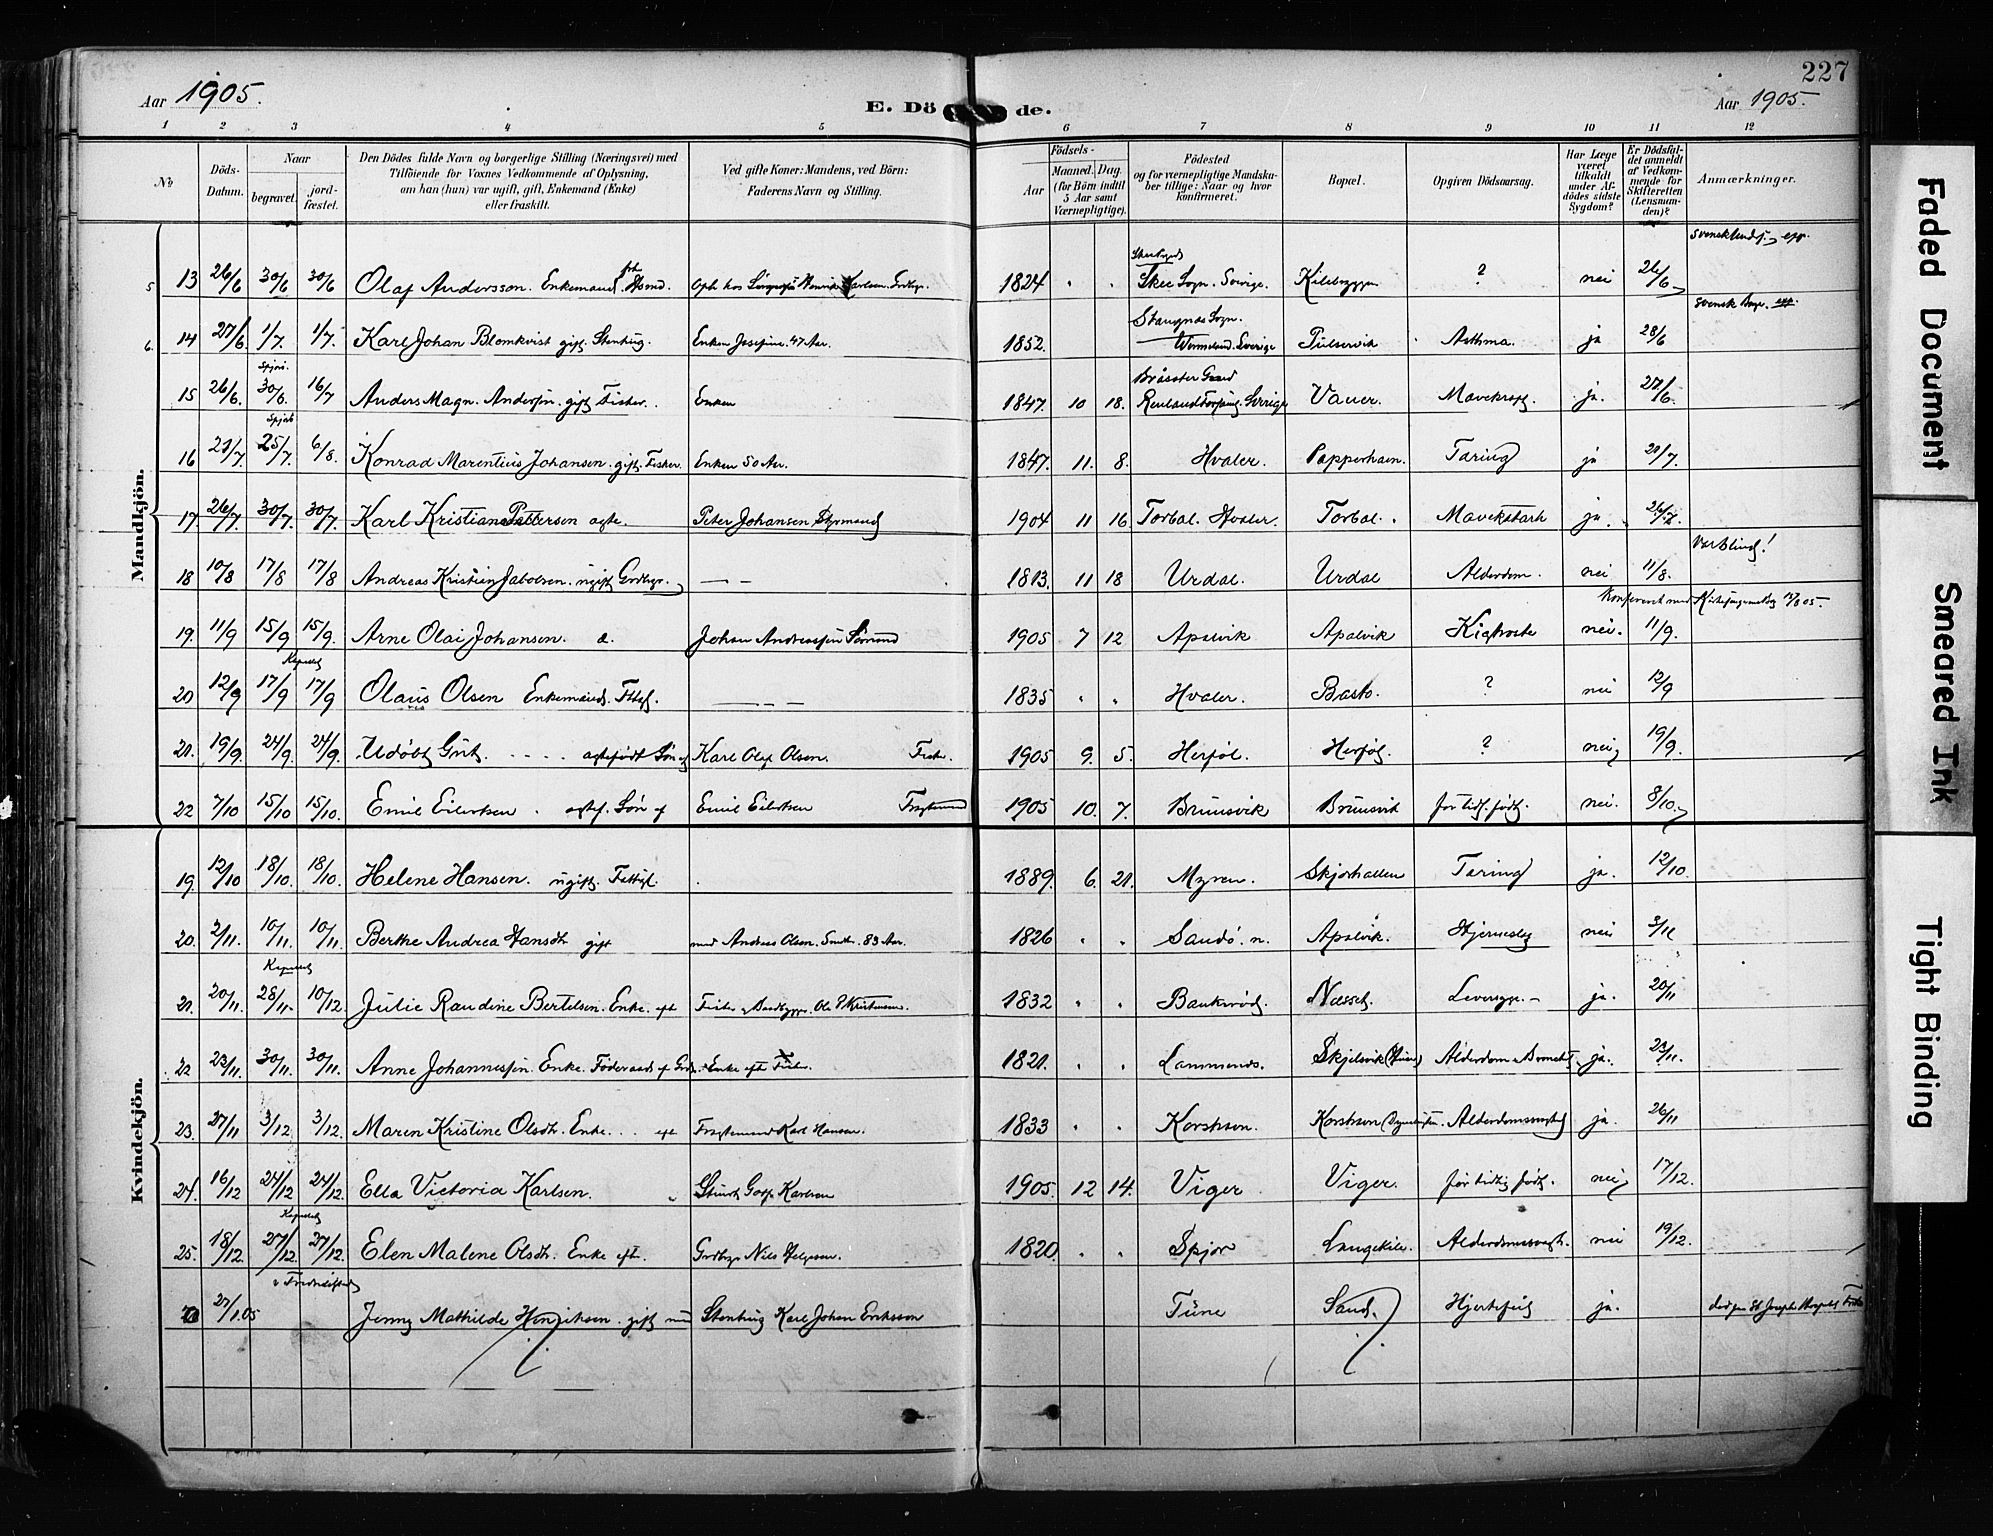 227
Aar 1905.
E. Dö de.
Aar 1905.
1 2 3 4 5 6 7 8 9 10 11 12
No
Döds-Datum.
Naar
begravet.
jord-fæstet.
Den Dödes fulde Navn og borgerlige Stilling (Næringsvei) med
Tilföiende for Voxnes Vedkommende af Oplysning,
om han (hun) var ugift, gift, Enkemand (Enke)
eller fraskilt.
Ved gifte Koner: Mandens, ved Börn:
Faderens Navn og Stilling.
Födsels-
Aar
Maaned. Dag.
(for Börn indtil
5 Aar samt
Værnepligtige).
Födested
og for værnepligtige Mandska-
ber tillige: Naar og hvor
konfirmeret.
Bopæl.
Opgiven Dödsaarsag.
Har Læge
været
tilkaldt
under Af-
dödes sidste
Sygdom?
Er Dödsfal-
det anmeldt
af Vedkom-
mende for
Skifteretten
(Lensman-
den)?
Anmærkninger.
Mandkjön.
5 13 26/6 30/6 30/6 Olaf Andersson. Enkemand. 1824 " " Skee Sogn. Sverige. ? nei 26/6
6. 14 27/6. 1/7. 1/7. Karl Johan Blomkvist gift Stenhug. Enken Josefine. 47 Aar. 1852. Sverige Asthma. ja 28/6
15 26/6. 30/6. 16/7 Anders Magn. Andersen. gift Fisker. Enken 1847. 10 18. Sverige Vauer. ja. 27/6.
Spjær
16 21/7. 25/7. 6/8. Konrad Marentius Johansen. gift. Fisker. Enken 50 Aar. 1847. 11. 8. Hvaler. Papperhavn. Tæring ja
17. 26/7 30/7. 30/7. Karl Kristian Pettersen ægte. Peter Johansen Styrmand 1904 11 16. Torbal. Hvaler. Torbal. Mavekatarh ja. 26/7.
Var Blind!
18 10/8 17/8 17/8 Andreas Kristian Jakobsen. ugift Grdbgr. — — 1813. 11 18 Urdal. Urdal Alderdom. nei 11/8.
19. 11/9 15/9 15/9. Arne Olai Johansen. æ. Johan Andreassen Sömand 1905 7 12 Apalvik Apalvik Kighoste nei. 11/9.
Kapellet
20 12/9 17/9 17/9 Olaus Olsen Enkemand. — - — 1835 " " Hvaler. Basto. ? nei 12/9
21. 19/9. 24/9 24/9. Udöbt Gut. - - - - ægtefödt Sön af Karl Olaf Olsen. Fisker. 1905 9. 5. Herföl. Herföl. ? nei 19/9.
22 7/10 15/10 15/10. Emil Eilertsen. ægtef. Sön af Emil Eilertsen Fragtemand 1905 10. 7. Brunsvik Brunsvik for tidl. födt. nei. 8/10.
Kvindekjön.
19. 12/10 18/10. 18/10. Helene Hansen. ugift. 1889. 6. 21. Myren. Skjærhallen Tæring ja. 12/10.
20. 2/11. 10/11. 10/11. Berthe Andrea Hansdtr gift med Andreas Olsen. Smith. 83 Aar. 1826 " " Sandö. n. Apalvik. Hjerneslag nei 3/11
Kapellet
21. 20/11. 28/11. 10/12. Julie Raudine Bertelsen. Enke. eft Fisker Ole P. Kristensen. 1832 " " Bankeröd. Næsset. ja. 20/11
22 23/11. 30/11. 30/11. Anne Johannesen. Enke. Föderaad af Enke eft Fisker. 1821. " " Skjelsvik Alderdom ja. 23/11.
23. 27/11 3/12 3/12. Maren Kristine Olsdtr. Enke. ... eft Fragtemand Karl Hansen. 1833 " " Korshavn. Korshavn Alderdomssvaghed ja. 26/11
24. 16/12 24/12 24/12. Ella Victoria Karlsen. " Karlsen 1905. 12 14. Viger Viger. for tidlig födt. nei 17/12.
Kapellet
25. 18/12. 27/12. 27/12. Elen Malene Olsdtr. Enke eft. Grdbgr Nils Helgesen. 1820. " " Spjær Langekile. Alderdomssvagh. nei 19/12.
27/1.05 Jenny Mathilde Henriksen. gift med Stenhug Karl Johan Eriksson Tune Sand. Hjertefeil ja. död paa St. Joseph Hospital
Faded Document
Smeared Ink
Tight Binding